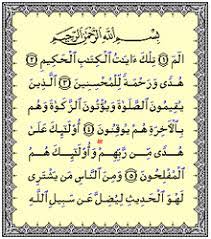 بِسْمِ اللَّهِ الرَّحْمَٰنِ الرَّحِيمِ
الٓمٓ ١ تِلْكَ ءَايَٰتُ الْكِتَٰبِ الْحَكِيمِ ٢
هُدًى وَرَحْمَةً لِّلْمُحْسِنِينَ ٣ الَّذِينَ
يُقِيمُونَ الصَّلَوٰةَ وَيُؤْتُونَ الزَّكَوٰةَ وَهُم
بِالْءَاخِرَةِ هُمْ يُوقِنُونَ ٤ أُوْلَٰٓئِكَ عَلَىٰ
هُدًى مِّن رَّبِّهِمْ وَأُوْلَٰٓئِكَ هُمُ
الْمُفْلِحُونَ ٥ وَمِنَ النَّاسِ مَن يَشْتَرِى
لَهْوَ الْحَدِيثِ لِيُضِلَّ عَن سَبِيلِ اللَّهِ